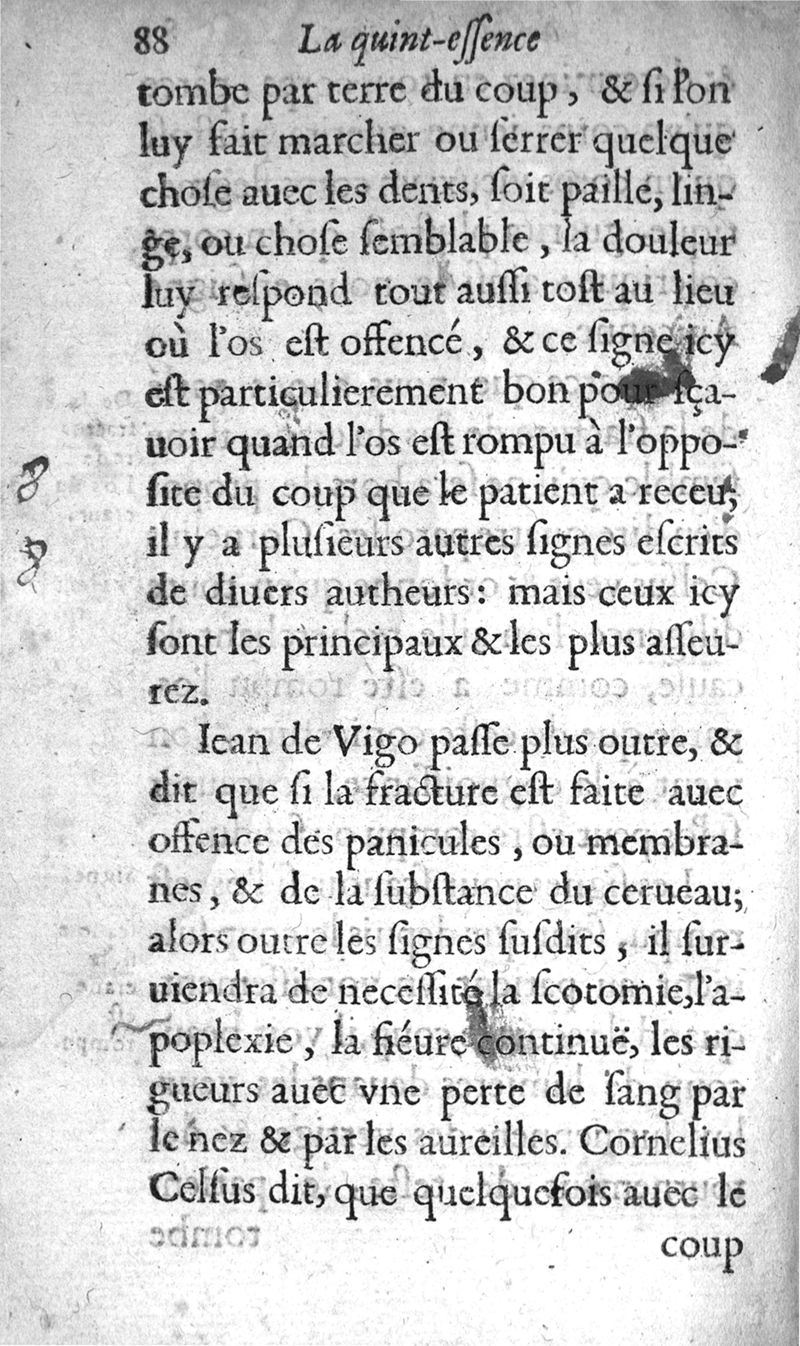 88 La quint-eſſence
tombe par terre du coup, & ſi l'on
luy fait marcher ou ſerrer quelque
choſe auec les dents, ſoit paille, lin-
ge, ou choſe ſemblable, la douleur
luy reſpond tout auſſi toſt au lieu
où l'os eſt offencé, & ce ſigne icy
eſt particulierement bon pour ſça-
uoir quand l'os eſt rompu à l'oppo-
ſite du coup que le patient a receu;
il y a pluſieurs autres ſignes eſcrits
de diuers autheurs: mais ceux icy
ſont les principaux & les plus aſſeu-
rez.
Iean de Vigo paſſe plus outre, &
dit que ſi la fracture eſt faite auec
offence des panicules, ou membra-
nes, & de la ſubſtance du cerueau;
alors outre les ſignes ſuſdits, il ſur-
uiendra de neceſſité la ſcotomie, l'a-
poplexie, la fiéure continuë, les ri-
gueurs auec vne perte de ſang par
le nez & par les aureilles. Cornelius
Celſus dit, que quelquefois auec le
coup